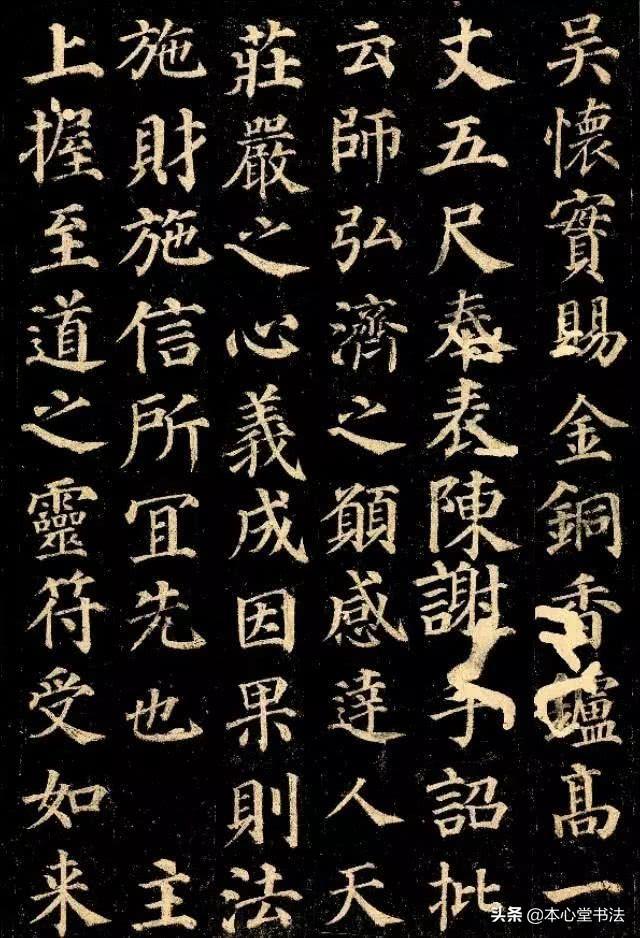 吴懷實賜金銅香鑪高一
丈五尺奉表陳謝手詔批
云師弘濟之願感達人天
莊嚴之心義成因果則法
施財施信所宜先也 主
上握至道之靈符受如来
头条 @本心堂书法